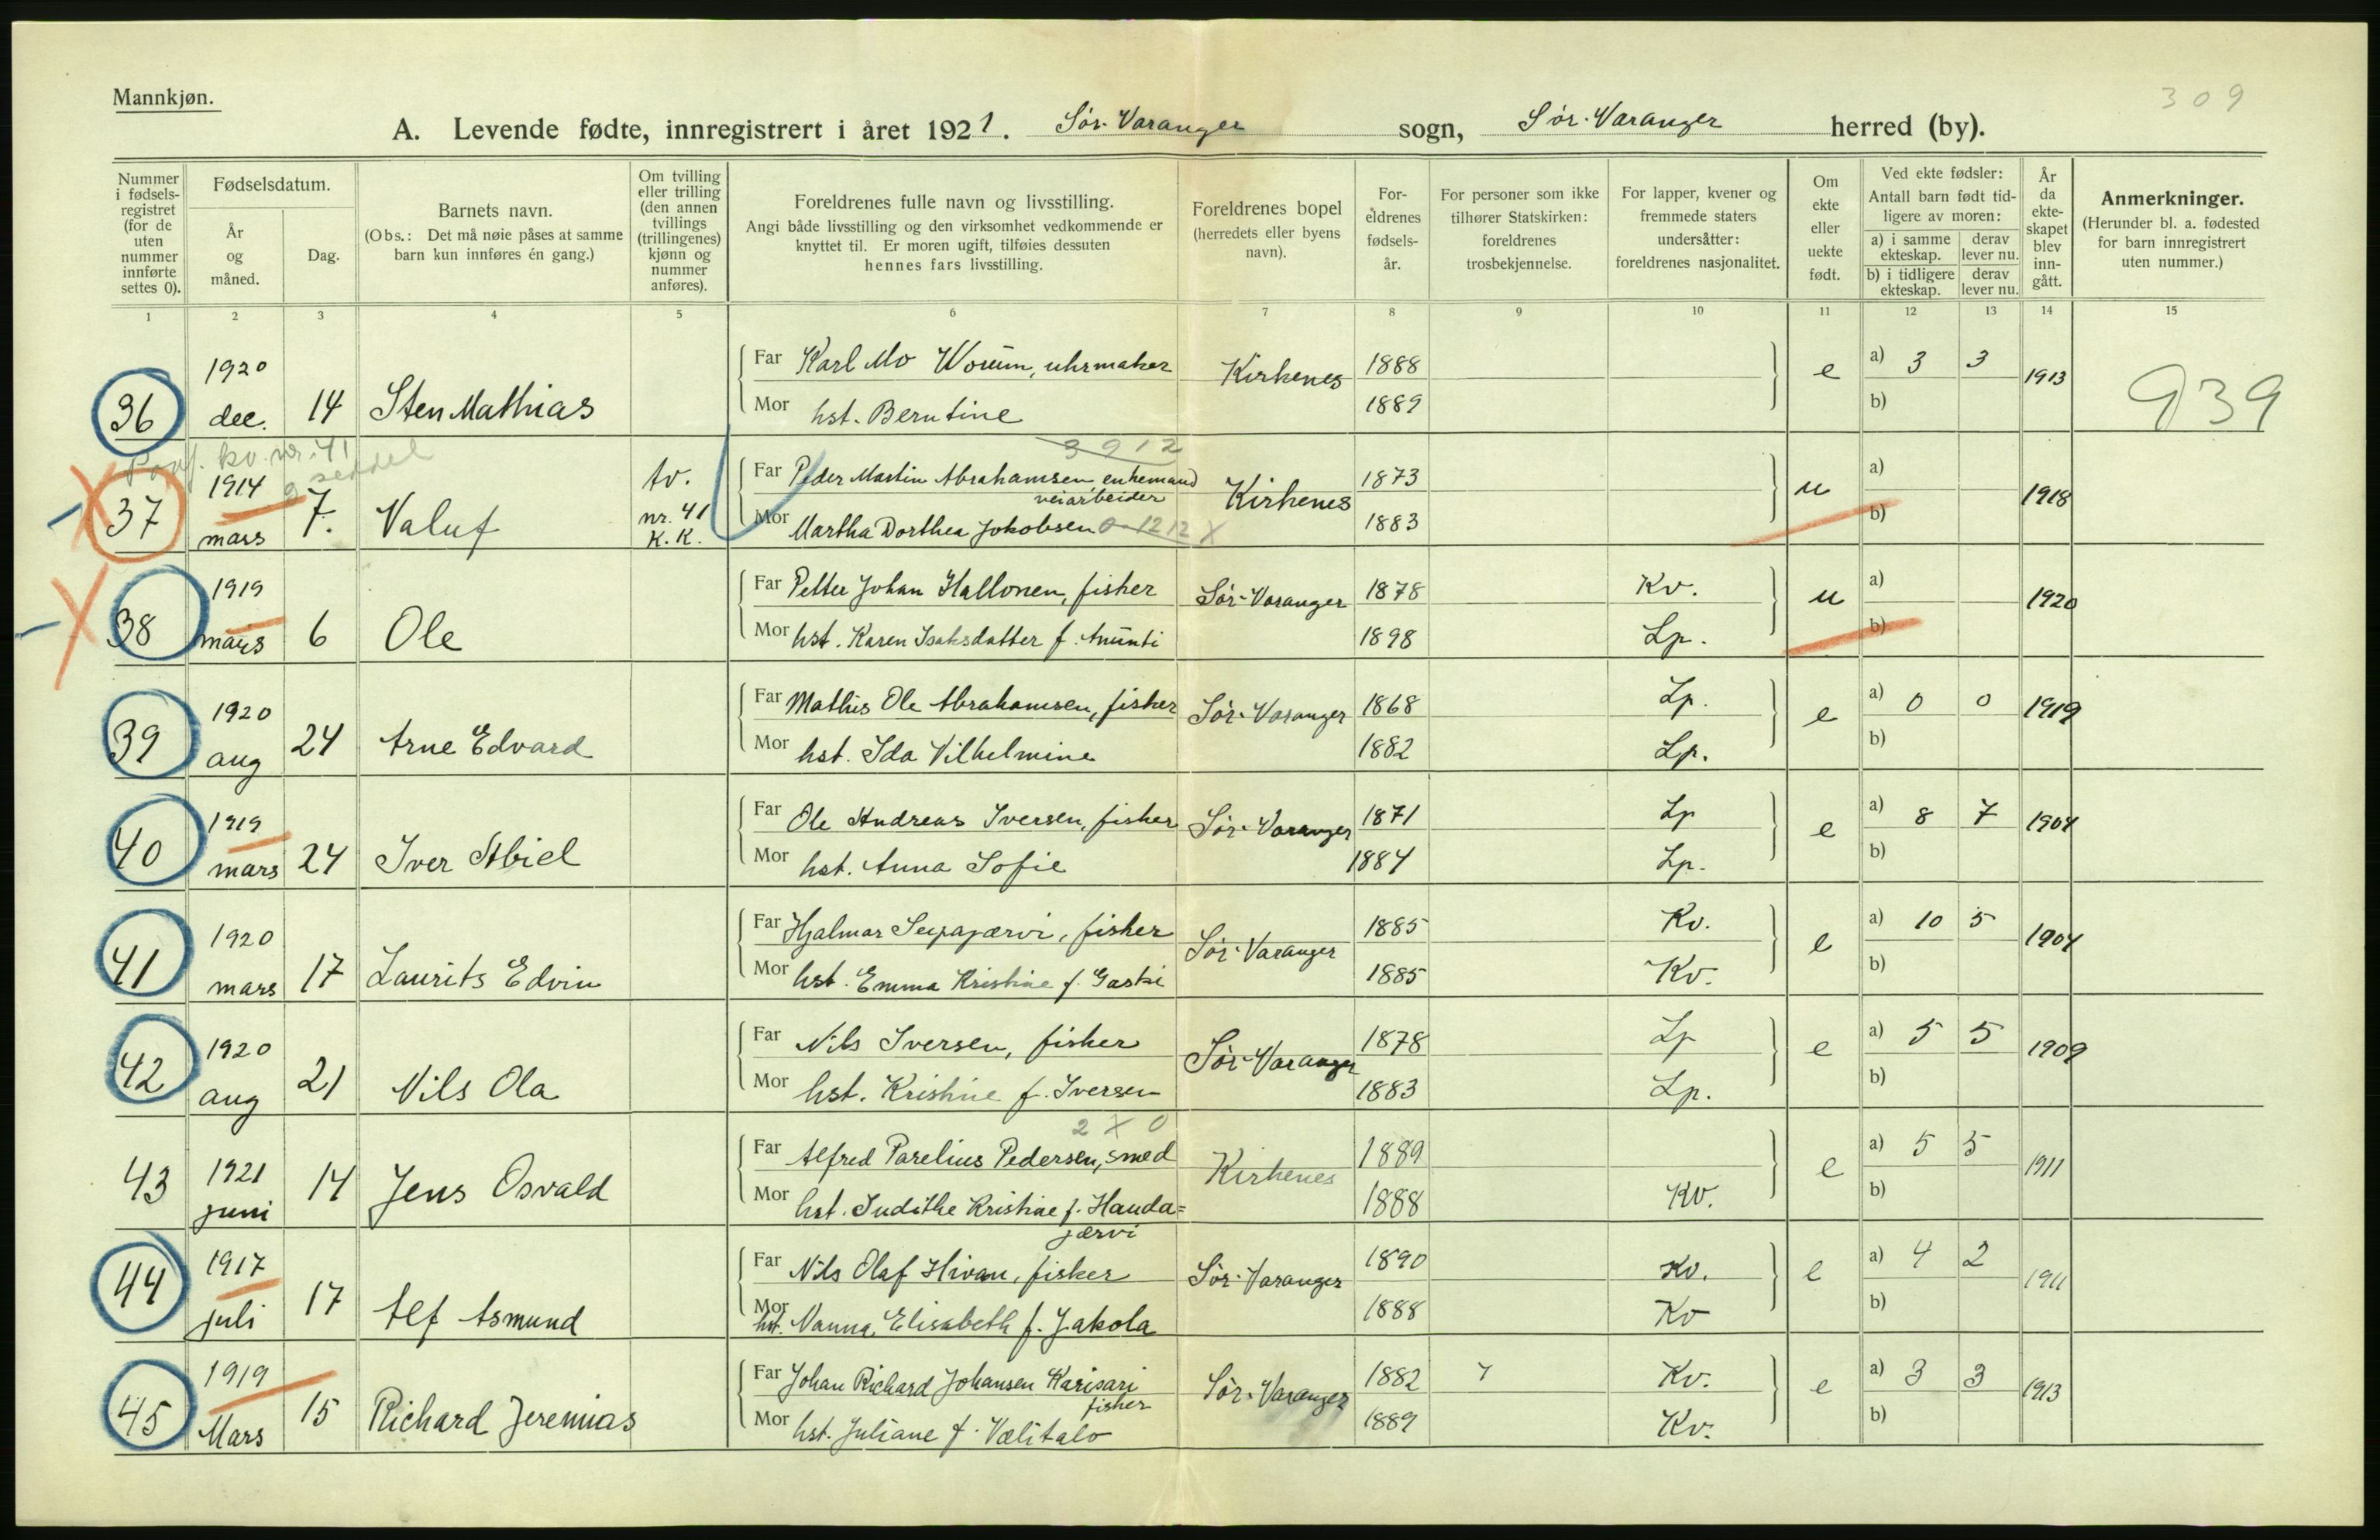 309
Mannkjøn.
A. Levende fødte, innregistrert i året 1921. Sør-Varanger sogn, Sør-Varanger herred (by).
Nummer i fødselsregistret (for de uten nummer innførte settes 0).
Fødselsdatum.
År og måned.
Dag.
Barnets navn.
(Obs.: Det må nøie påses at samme barn kun innføres én gang.)
Om tvilling eller trilling (den annen tvillings (trillingenes) kjønn og nummer anføres).
Foreldrenes fulle navn og livsstilling.
Angi både livsstilling og den virksomhet vedkommende er knyttet til. Er moren ugift, tilføies dessuten hennes fars livsstilling.
Foreldrenes bopel (herredets eller byens navn).
Foreldrenes fødselsår.
For personer som ikke tilhører Statskirken: foreldrenes trosbekjennelse.
For lapper, kvener og fremmede staters undersåtter: foreldrenes nasjonalitet.
Om ekte eller uekte født.
Ved ekte fødsler:
Antall barn født tidligere av moren:
a) i samme ekteskap.
derav lever nu.
b) i tidligere ekteskap.
derav lever nu.
År da ekteskapet blev inngått.
Anmerkninger.
(Herunder bl. a. fødested for barn innregistrert uten nummer.)
1 2 3 4 5 6 7 8 9 10 11 12 13 14 15
36 1920 dec. 14 Sten Mathias Far Karl Mo Worum, uhrmaker Kirkenes 1888 e a) 3 3 1913 939
Mor hst. Berntine 1889 b)
kv. nr. 41 seddel
3912
37 1914 mars 7. Valuf tv. nr. 41 K.K. Far Peder Martin Abrahamsen, enkemand veiarbeider Kirkenes 1873 u a) 1918
Mor Martha Dorthea Jakobsen 0-1212 X 1883 b)
38 1919 mars 6 Ole Far Petter Johan Hallonen, fisker Sør-Varanger 1878 Kv. u a) 1920
Mor hst. Karen Isaksdatter f. Anunti 1898 Lp. b)
39 1920 aug 24 Arne Edvard Far Mathis Ole Abrahamsen, fisker Sør-Varanger 1868 Lp. e a) 0 0 1919
Mor hst. Ida Vilhelmine 1882 Lp. b)
40 1919 mars 24 Iver Abiel Far Ole Andreas Iversen, fisker Sør-Varanger 1871 Lp e a) 8 7 1904
Mor hst. Anna Sofie 1884 Lp. b)
41 1920 mars 17 Laurits Edvin Far Hjalmar Seipajærvi, fisker Sør-Varanger 1885 Kv. e a) 10 5 1904
Mor hst. Emma Kristine f. Gaski 1885 Kv. b)
42 1920 aug 21 Nils Ola Far Nils Iversen, fisker Sør-Varanger 1878 Lp e a) 5 5 1909
Mor hst. Kristine f. Iversen 1883 Lp. b)
2 X 0
43 1921 juni 14 Jens Osvald Far Alfred Parelius Pedersen, smed Kirkenes 1889 e a) 5 5 1911
Mor hst. Judithe Kristine f. Handa=jærvi 1888 Kv. b)
44 1917 juli 17 Alf Asmund Far Nils Olaf Hivan, fisker Sør-Varanger 1890 Kv. e a) 4 2 1911
Mor hst. Nanna Elisabeth f. Jakola 1888 Kv b)
45 1919 Mars 15 Richard Jeremias Far Johan Richard Johansen Karisari fisker Sør-Varanger 1882 Kv. e a) 3 3 1913
Mor hst. Juliane f. Vælitalo 1889 Kv. b)